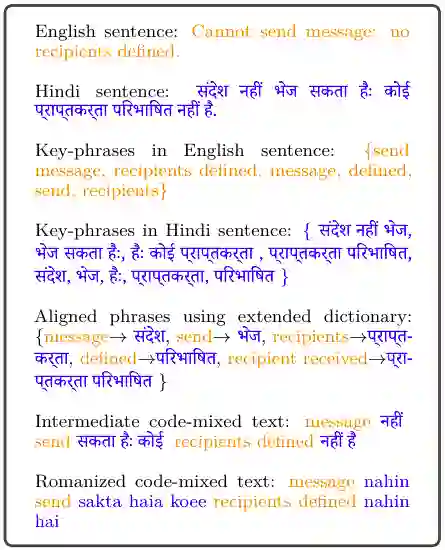 English sentence: Cannot send message: no
recipients defined.
Hindi sentence: संदेश नहीं भेज सकता हैः कोई
प्राप्तकर्ता परिभाषित नहीं है.
Key-phrases in English sentence: {send
message, recipients defined, message, defined,
send, recipients}
Key-phrases in Hindi sentence: { संदेश नहीं भेज,
भेज सकता हैः, हैः कोई प्राप्तकर्ता , प्राप्तकर्ता परिभाषित,
संदेश, भेज, हैः, प्राप्तकर्ता, परिभाषित }
Aligned phrases using extended dictionary:
{message→ संदेश, send→ भेज, recipients→प्राप्त-
कर्ता, defined→परिभाषित, recipient received→प्रा-
प्तकर्ता परिभाषित }
Intermediate code-mixed text: message नहीं
send सकता हैः कोई recipients defined नहीं है
Romanized code-mixed text: message nahin
send sakta haia koee recipients defined nahin
hai